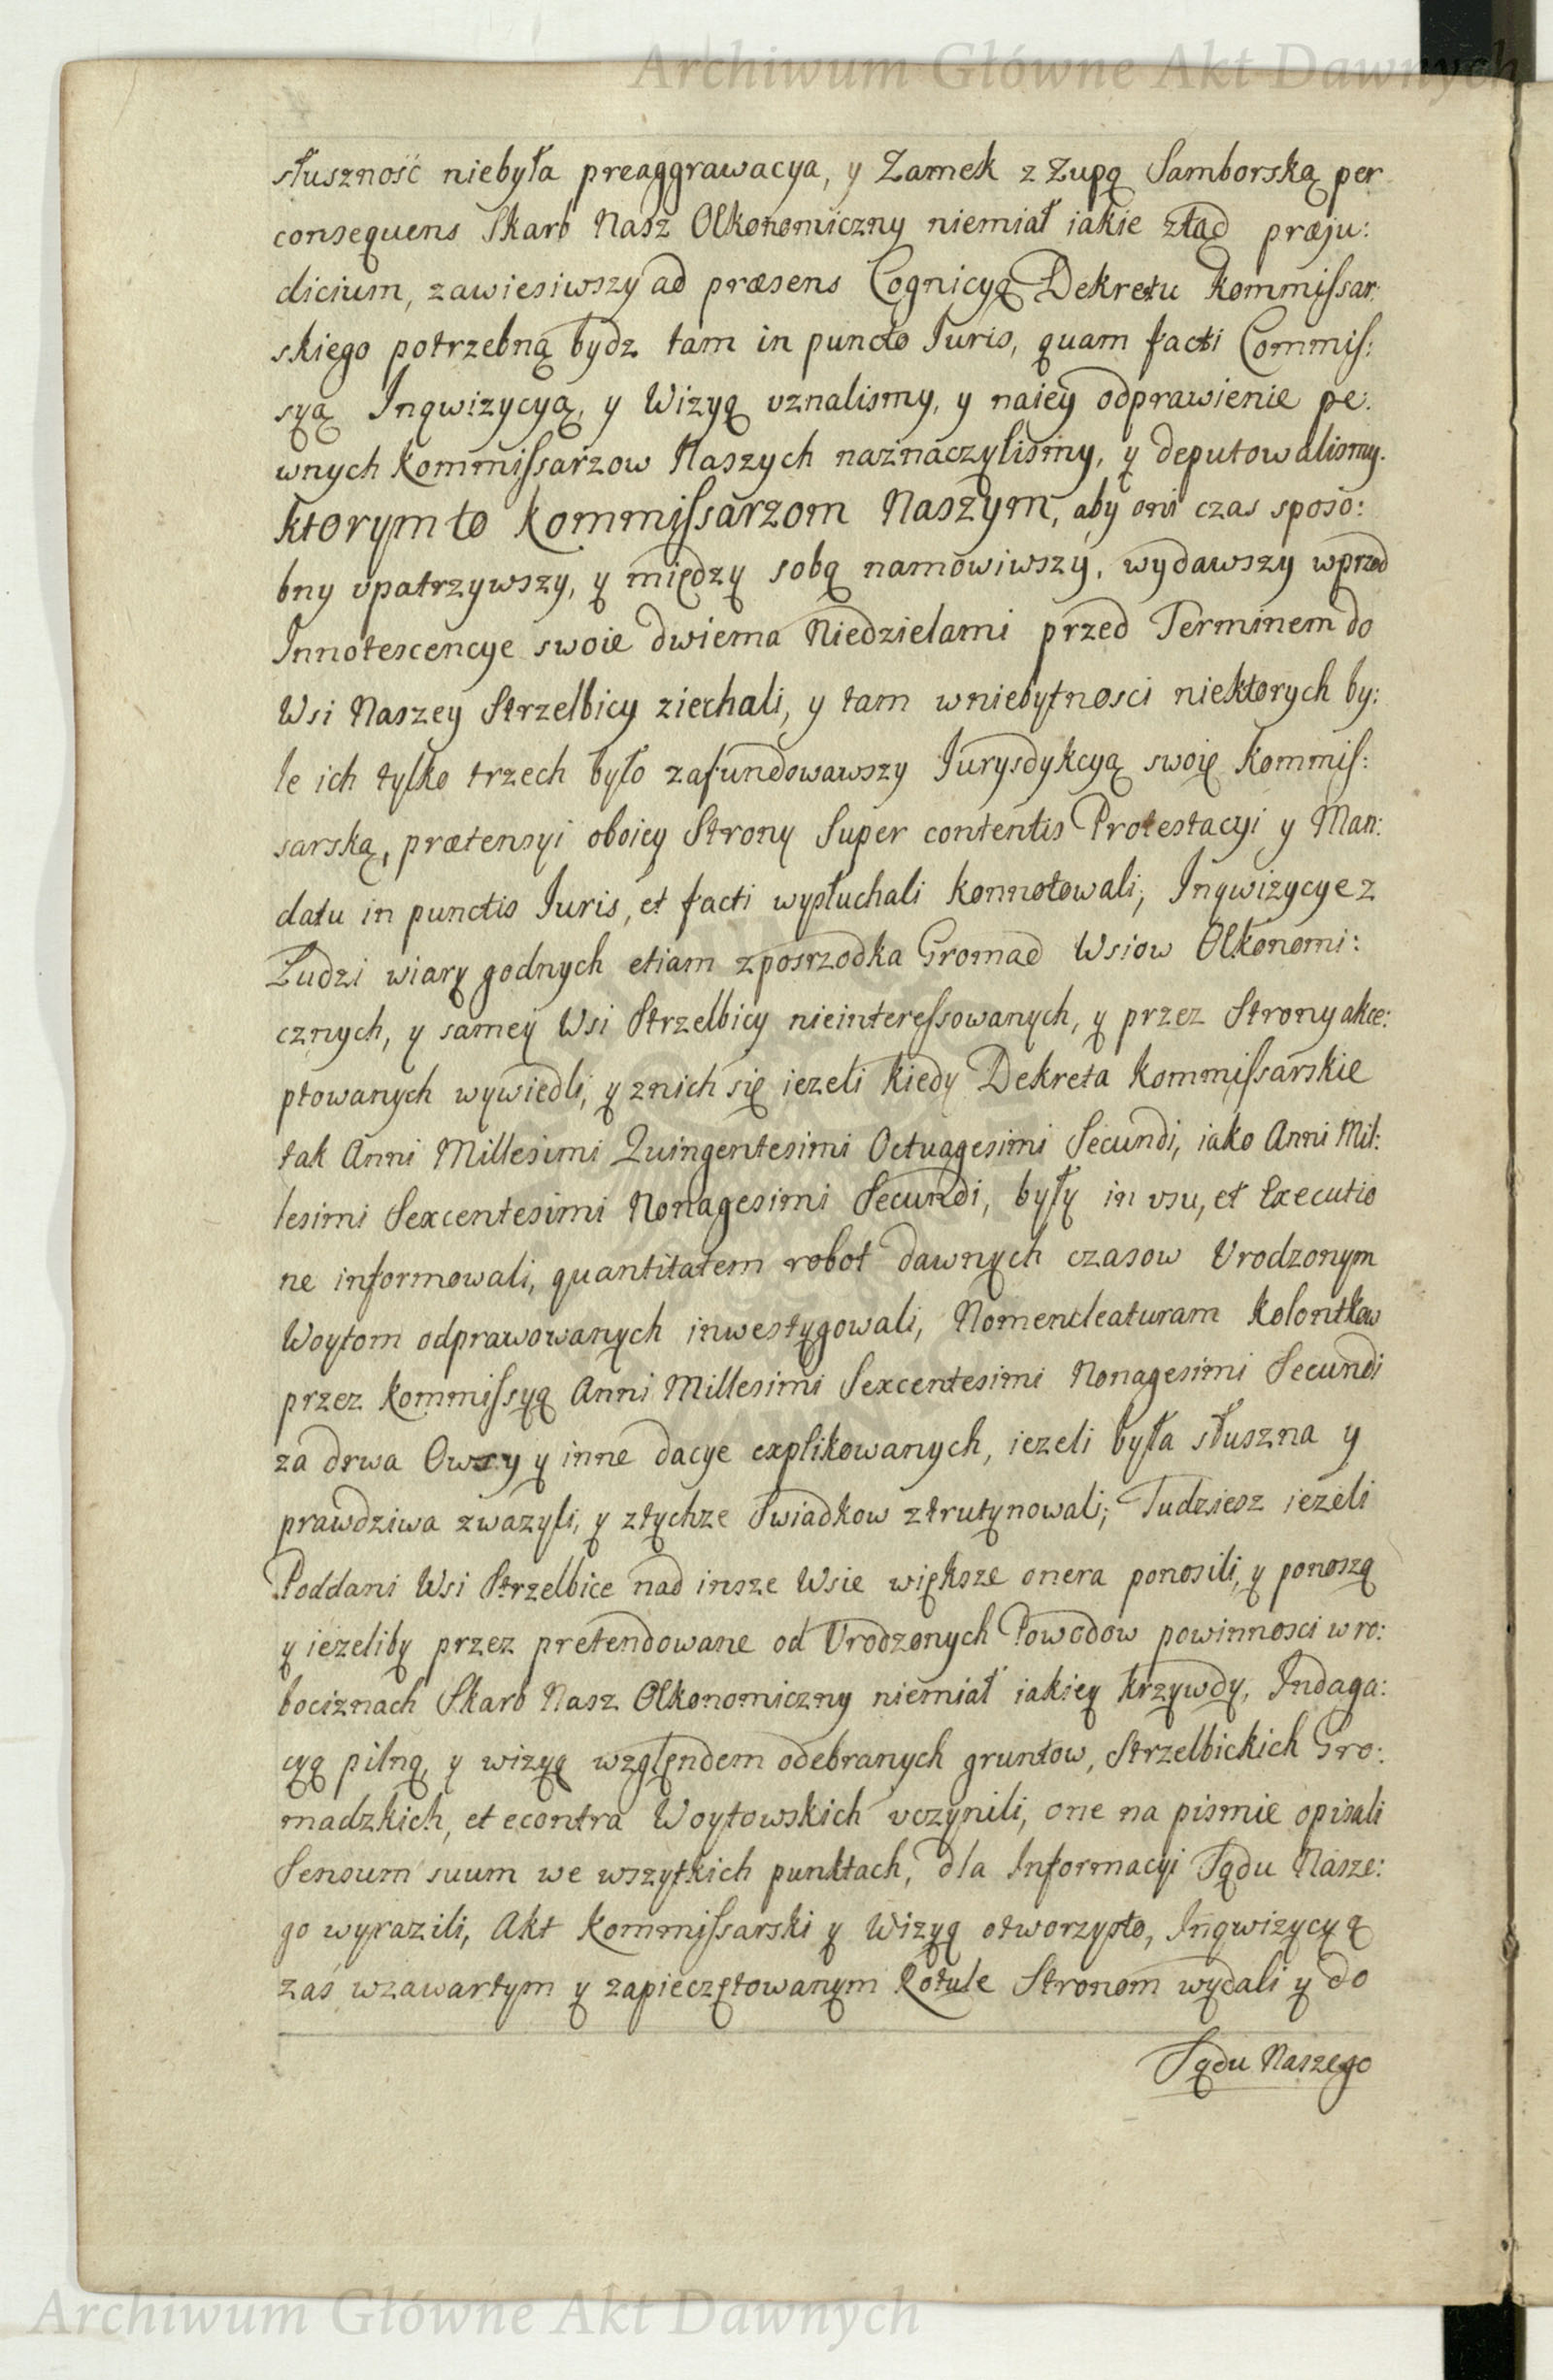 Archiwum Główne Akt Dawnych
słuszność niebyła preaggrawacya, y Zamek z Zupą Samborską per
consequens Skarb Nasz Olkonomiczny niemiał iakie ztąd præju:
dicium, zawiesiwszy ad præsens Cognicyą Dekretu Kommissar:
skiego potrzebną bydz tam in puncto Iuris, quam facti Commis:
syą Inqwizycyą, y Wizyą vznalismy, y naiey odprawienie pe:
wnych Kommissarzow Naszych naznaczylismy, y deputowalismy.
Ktorym to Kommissarzom Naszym, aby oni czas sposo:
bny vpatrzywszy, y między sobą namowiwszy, wydawszy wprzod
Innotescencye swoie dwiema Niedzielami przed Terminem do
Wsi Naszey Strzelbicy ziechali, y tam wniebytnosci niektorych by:
le ich tylko trzech było zafundowawszy Jurysdykcyą swoię Kommis:
sarską, prætensyi oboiey Strony Super contentis Protestacyi y Man:
datu in punctis Iuris, et facti wysłuchali konnotowali, Inqwizycye z
Ludzi wiary godnych etiam zposrzodka Gromad Wsiow Olkonomi:
cznych, y samey Wsi Strzelbicy nieinteressowanych, y przez Strony akce:
ptowanych wywiedli, y znich się iezeli kiedy Dekreta Kommissarskie
tak Anni Millesimi Quingentesimi Octuagesimi Secundi, iako Anni Mil:
lesimi Sexcentesimi Nonagesimi Secundi, były in vsu, et Executio
ne informowali, quantitatem robot dawnych czasow Vrodzonym
Woytom odprawowanych inwestygowali, Nomencleaturam Kolontkow
przez Kommissyą Anni Millesimi Sexcentesimi Nonagesimi Secundi
za drwa Owsy y inne dacye explikowanych, iezeli była słuszna y
prawdziwa zwazyli, y ztychze Swiadkow ztrutynowali; Tudziesz iezeli
Poddani Wsi Strzelbice nad insze Wsie większe onera ponosili, y ponoszą
y iezeliby przez pretendowane od Vrodzonych Powodow powinnosci w ro:
bociznach Skarb Nasz Olkonomiczny niemiał iakiey krzywdy, Indaga:
cyą pilną, y wizyą względem odebranych gruntow, Strzelbickich Gro:
madzkich, et econtra Woytowskich vczynili, one na pismie opisali
Sensum suum we wszytkich punktach, dla Informacyi Sądu Nasze:
go wyrazili, Akt Kommissarski y Wizyą otworzysto, Inqwizycyą
zaś wzawartym y zapieczętowanym Rotule Stronom wydali y do
Sądu Naszego
Archiwum Główne Akt Dawnych